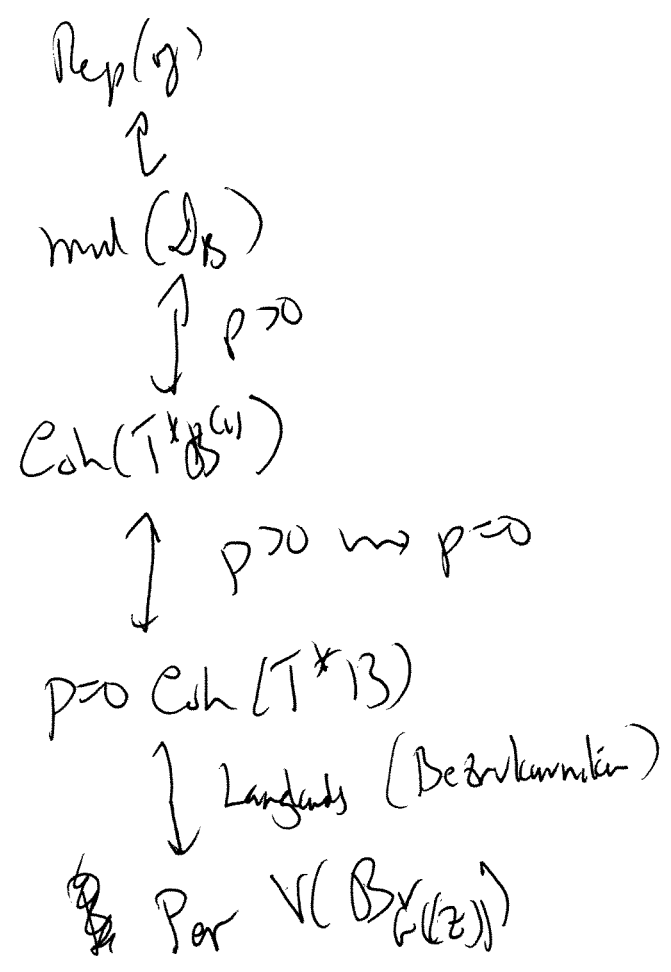 Rep(𝔤)
↕
mod(𝒟_B)
↕ p>0
Coh(T*B⁽¹⁾)
↕ p>0 ⇝ p=0
p=0 Coh(T*B)
↕ Langlands (Bezrukavnikov)
Per V(B